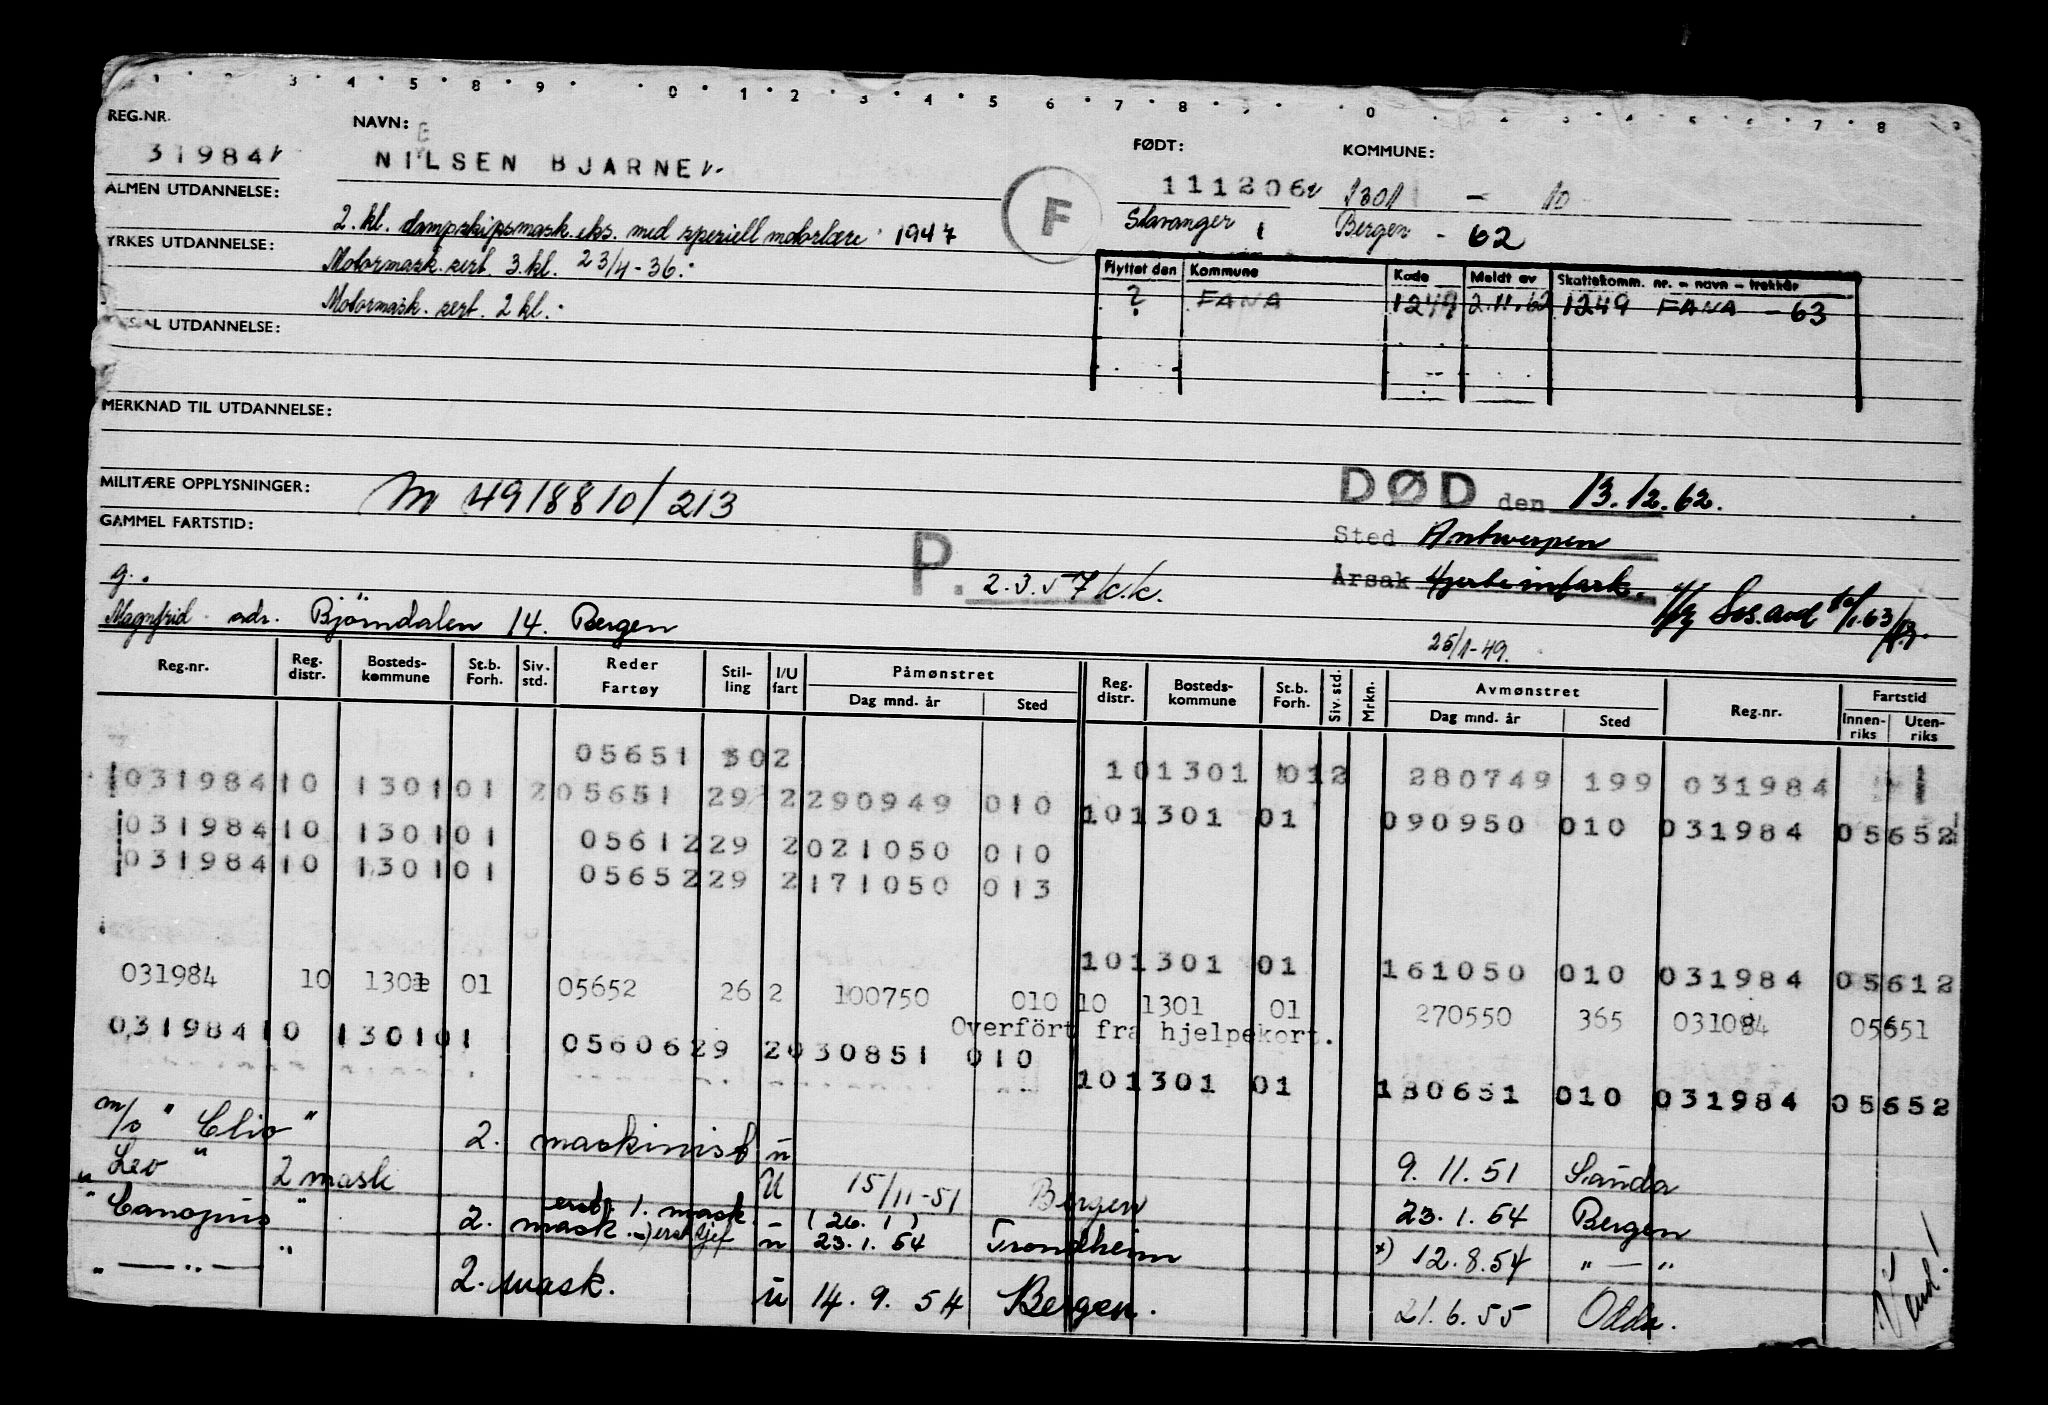 REG.NR. NAVN: FØDT: KOMMUNE:
31984 NILSEN BJARNE 111206 1301 - 10
ALMEN UTDANNELSE: F Stavanger 1 Bergen - 62
2. kl. dampskipsmask. eks. med spesiell motorlære 1947
YRKES UTDANNELSE: Motormask. sert. 3. kl. 23/4-36.
Flyttet den Kommune Kode Meldt av Skattekomm. nr. - navn - trekkår
? FANA 1249 2.11.62 1249 FANA - 63
Motormask. sert. 2 kl.
UTDANNELSE:
MERKNAD TIL UTDANNELSE:
MILITÆRE OPPLYSNINGER: M 4918810/213
DØD den 13.12.62.
GAMMEL FARTSTID:
Sted Antwerpen
P. 2.3.57/k.k.
Årsak Hjerteinfark.
g.
Magnfrid adr. Bjørndalen 14. Bergen
25/1-49.
Reg.nr. Reg. distr. Bosteds-kommune St.b. Forh. Siv. std. Reder Fartøy Stil-ling I/U fart Påmønstret Dag mnd. år Sted Reg. distr. Bosteds-kommune St.b. Forh. Siv. std. Mrkn. Avmønstret Dag mnd. år Sted Reg.nr. Fartstid Innen-riks Uten-riks
05651 302 10 1301 012 280749 199 031984
031984 10 1301 01 2 05651 29 2 290949 010
10 1301 01 090950 010 031984 05652
031984 10 1301 01 05612 29 2 021050 010
031984 10 1301 01 05652 29 2 171050 013
10 1301 01 161050 010 031984 05612
031984 10 1301 01 05652 26 2 100750 010 10 1301 01 270550 365 031084 05651
Overført fra hjelpekort.
031984 10 1301 01 05606 29 2 030851 010
10 1301 01 180651 010 031984 05652
m/s " Clio " 2. maskinist u 9. 11. 51 Sauda
" Leo " 2 mask U 15/11-51 Bergen 23. 1. 54 Bergen
erst. 1. mask (26. 1)
" Canopus " 2. mask u 23. 1. 54 Trondheim x) 12. 8. 54 " — "
" — " — " 2. mask. u 14. 9. 54 Bergen. 21. 6. 55 Odda.
Vend!